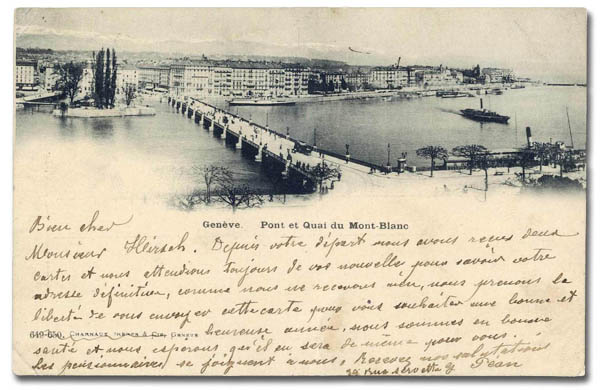 Genève. Pont et Quai du Mont-Blanc
Bien cher
Monsieur Hirsch. Depuis votre départ nous avons reçus deux
cartes et nous attendions toujours de vos nouvelle pour savoir votre
adresse définitive, comme nous ne recevons rien, nous prenons la
liberté de vous envoyer cette carte pour vous souhaiter une bonne et
649-650. Charnaux Frères & Cie, Genève heureuse année, nous sommes en bonne
santé et nous esperons qu'il en sera de même pour vous.
Les pensionnaires se joignent à nous, Recevez nos salutations
rue Servette Péan